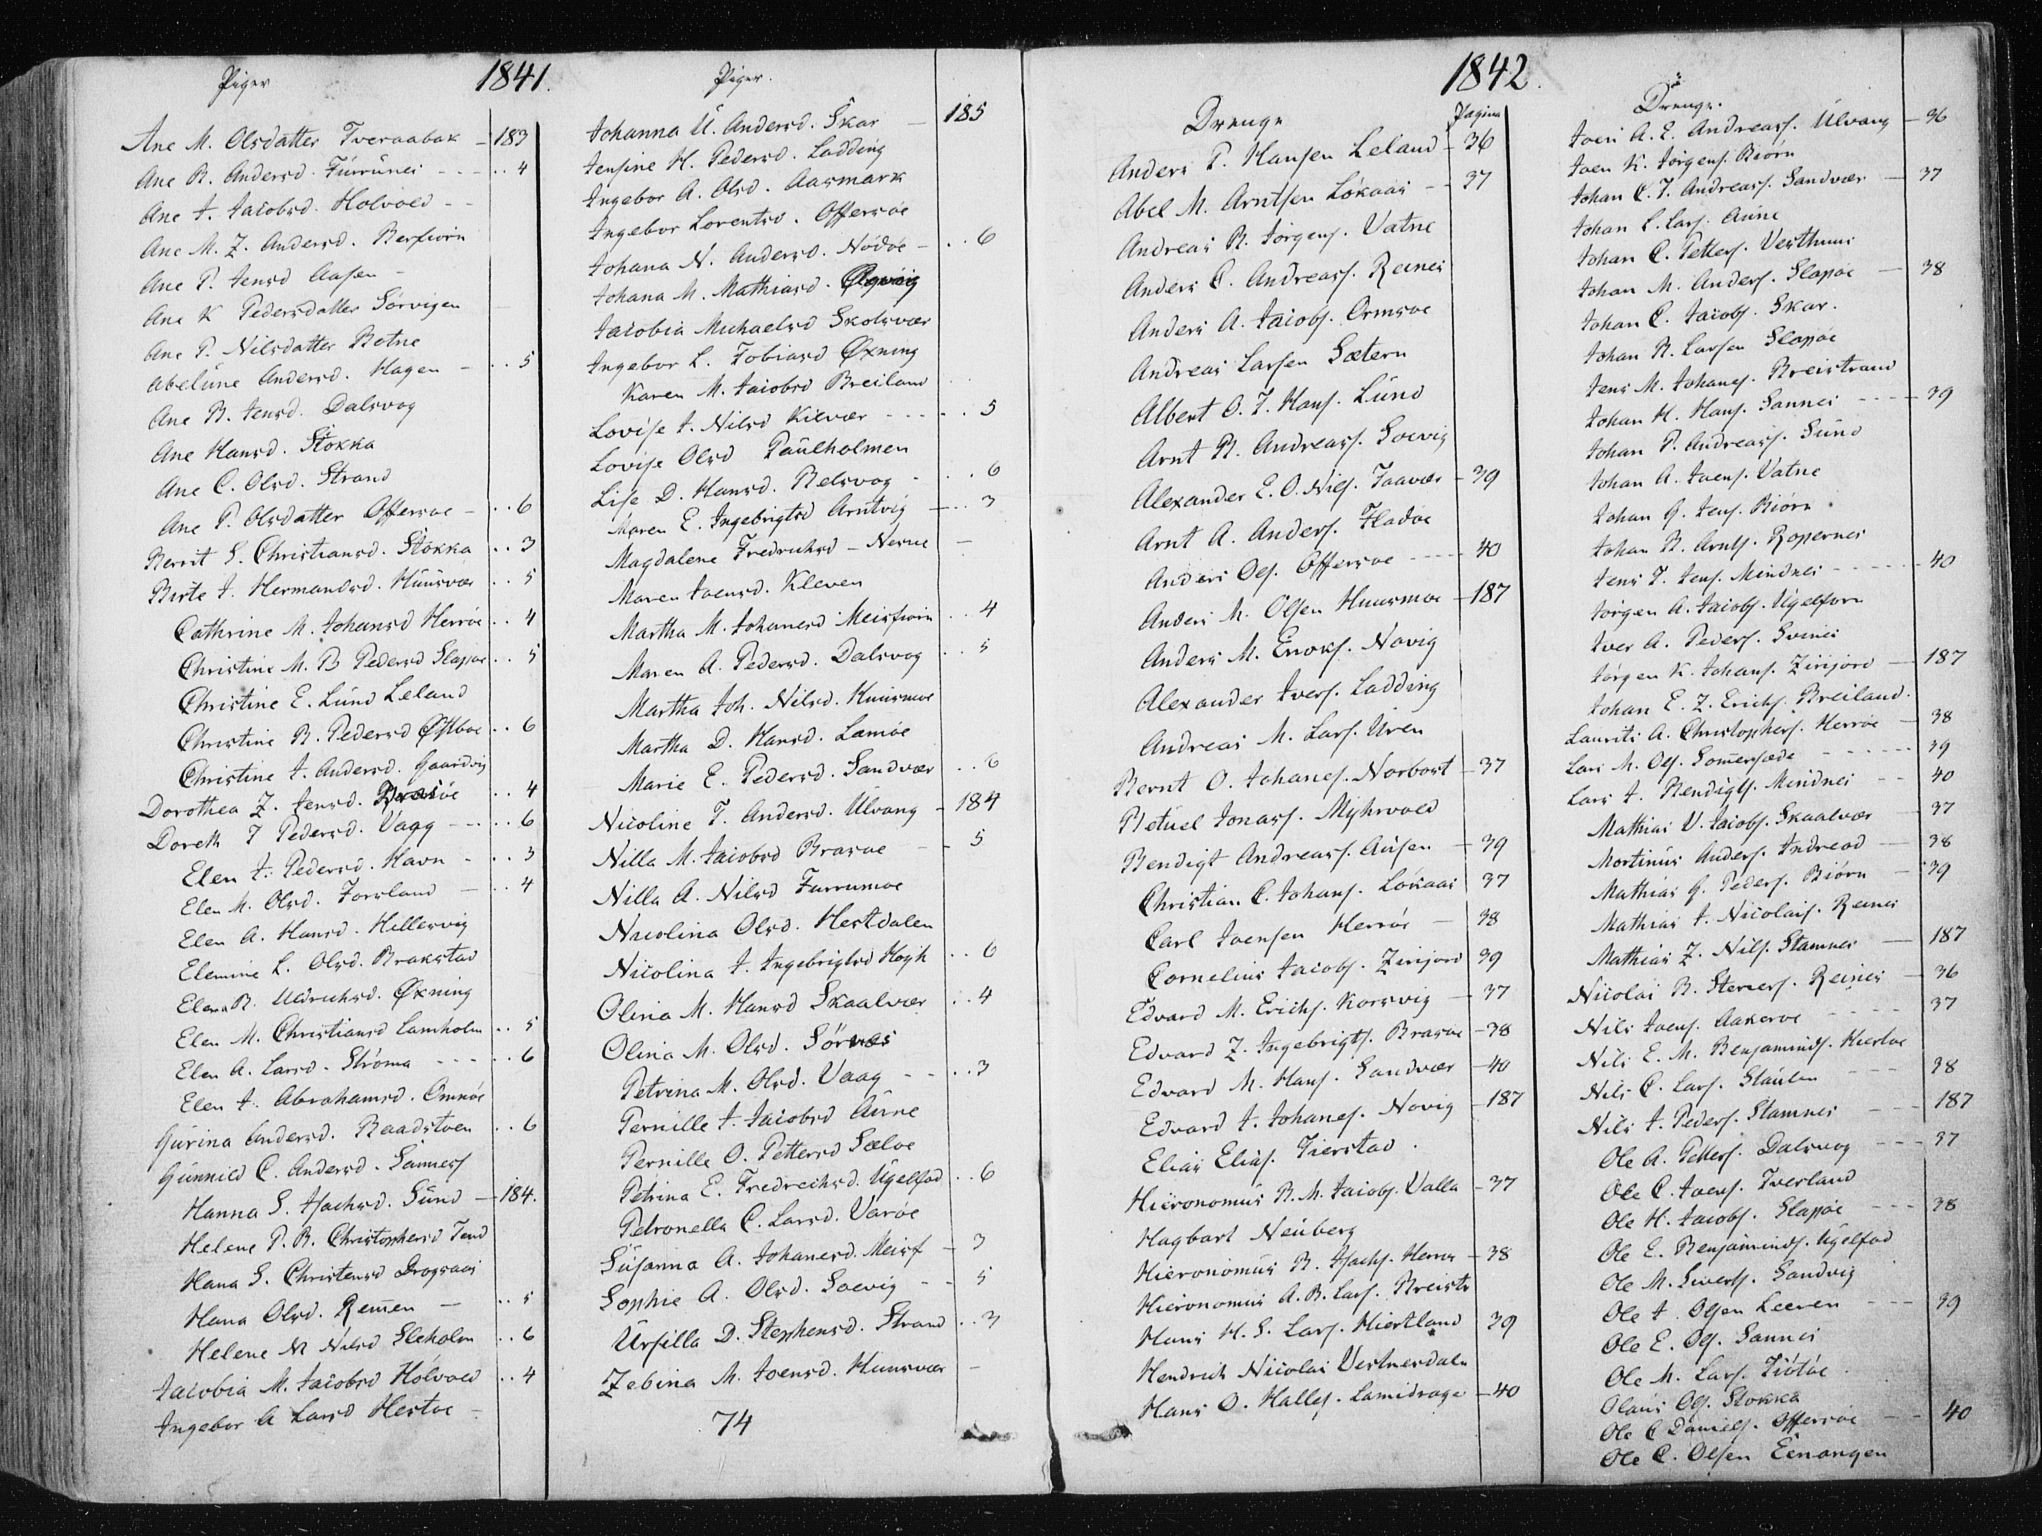 1841.
Piger
Ane M. Olsdatter Tveraabak - 183
Ane B. Andersd. Furrunes - - - .. 4
Ane J. Jacobsd. Holvoed - -
Ane M. Z. Andersd. Berfiorn
Ane P. Jensd Aasen -
Ane K Pedersdatter Sörvigen
Ane P. Nilsdatter Botne
Abelune Andersd. Hagen - .. 5
Ane B. Jensd. Dalsvog
Ane Hansd. Stokka
Ane C. Olsd. Strand
Ane P. Olsdatter Offersøe - .. 6
Berrit S. Christiansd. Stokka .. 3
Birte J. Hermandsd. Huusvær .. 5
Cathrine M. Johansd Herrøe .. 4
Christine M. B Pedersd Slapøe .. 5
Christine E. Lund Leland
Christine B. Pedersd Østboe .. 6
Christine J. Andersd. Gaardvig
Dorothea Z. Jensd. .. 4
Doreth J Pedersd. Vaag - .. 6
Elen J. Pedersd. Havn - .. 3
Elen M. Olsd. Forsland - .. 4
Elen A. Hansd. Hellesvig
Elemine L. Olsd. Brakstad
Elena B. Uldrichsd. Øxning
Elen M. Christiansd Lamholm .. 5
Elen A. Larsd. Ströma - - - .. 6
Elen J. Abrahamsd. Omnöe
Gurina Andersd. Raadstoen .. 6
Gunnild C. Andersd. Sannes
Hanna S. Isachsd. Sund - 184.
Helene P. B. Christophersd Tend
Hana S. Christensd Drogsaas
Hana Olsd. Remen - .. 5
Helene M Nilsd Sleholm .. 6
Jacobia M. Jacobsd Holvoed .. 4
Ingebor A Larsd Hestøe -
Piger.
Johanna U. Andersd. Skar - 185
Jensine H. Pedersd. Ladding
Ingebor A. Olsd. Aasmark
Ingebor Lorentsd. Offersøe
Johana N. Andersd. Nödøe - .. 6
Johana M. Mathiasd.
Jacobia Michaelsd Skolsvær
Ingebor L. Tobiasd Øxning
Karen M. Jacobsd Breiland
Lovise J. Nilsd Kilvær - - - .. 5
Lovise Olsd Paulholmen
Lise D. Hansd. Belsvog - .. 6
Maren E. Ingebrigtsd Arntvig - .. 3
Magdalene Fredrichsd - Nesne -
Maren Joensd. Kleven
Martha M. Johanesd Meisfiorn .. 4
Maren A. Pedersd. Dalsvog .. 5
Martha Joh. Nilsd. Huusmoe
Martha D. Hansd. Lamøe
Marie E. Pedersd. Sandvær .. 6
Nicoline T. Andersd. Ulvang - 184
Nilla M. Jacobsd Brasøe - - 5
Nilla A. Nilsd Furrumoe
Nicolina Olsd. Hestdalen
Nicolina J. Ingebrigtsd Høgh .. 6
Olina M. Hansd Skaalvær .. 4
Olina M. Olsd. Sörnæs
Petrina M. Olsd. Vaag - - .. 3
Pernille J. Jacobsd Aune
Pernille O. Pettersd Sæløe
Petrina E. Fredrichsd. Ugelfod .. 6
Petronella C. Larsd. Varøe
Susanna A. Johanesd. Meisf - 3
Sophie A. Olsd. Soevig - - 5
Ursilla D. Stephensd. Strand .. 3
Zebina M. Joensd. Huusvær -
74
1842.
Drenge Pagina
Anders P. Hansen Leland - 36
Abel M. Arntsen Lökaas - - 37
Andreas B. Jörgens. Vatne
Anders C. Andreass. Reines
Anders A. Jacobs. Ormsøe
Andreas Larsen Sætern
Albert O. J. Hans. Lund
Arnt B. Andreass. Soevig
Alexander E. O. Nils. Taavær - 39
Arnt A. Anders. Fladøe
Anders Ols. Offersøe - - - - 40
Anders M. Olsen Huusmoe - 187
Anders M. Enoks. Novig
Alexander Ivers. Ladding
Andreas M. Lars. Uren
Bernt O. Johanes. Norbost - 37
Betuel Jonass. Myhrvold
Bendigt Andreass. Ausen - 39
Christian C. Johans. Lökaas 37
Carl Joensen Herrøe - 38
Cornelius Jacobs. Zirijord 39
Edvard M. Erichs. Korsvig - 37
Edvard Z. Ingebrigts. Brasøe - 38
Edvard M. Hans. Sandvær - 40
Edvard J. Johanes. Novig - 187
Elias Elias. Tierstad.
Hieronomus B. M. Jacobs. Valla - 37
Hagbart Neuberg
Hieronomus B. Isachs. Herrøe - 38
Hieronomus A. B. Lars. Breistr
Hans H. S. Lars. Hiertland 39
Hendrich Nicolai Vestnesdalen
Hans O. Halles. Lamidrage - 40
Drenge.
Joen A. E. Andreass. Ulvang - 36
Joen K. Jörgens. Biörn
Johan C. T. Andreass. Sandvær - 37
Johan L. Lars. Aune
Johan C. Petters. Vesthuus
Johan M. Anders. Slapøe - 38
Johan C. Jacobs. Skar.
Johan B. Larsen Slapøe
Jens M. Johanes. Breistrand
Johan H. Hans. Sannes - - - 39
Johan P. Andreass. Sund
Johan A. Joens. Vatne
Johan G. Jens. Biörn
Johan B. Arnts. Ropernes
Jens T. Jens. Mindnes - - - - 40
Jörgen A. Jacobs. Ugelforn
Iver A. Peders. Svines
Jörgen K. Johans. Zirijord - 187
Johan E. Z. Erichs. Breiland.
Laurits A. Christophers. Herrøe - 38
Lars M. Ols. Somersæde - - - - 39
Lars J. Bendigts. Mindnes - - 40
Mathias V. Jacobs. Skaalvær - 37
Mortinus Anders. Indreød - 38
Mathias G. Peders. Biörn - 39
Mathias J. Nicolais. Reines
Mathias Z. Nils. Stamnes - 187
Nicolai B. Steners. Reines - 36
Nils Joens. Aakerøe - - - - 37
Nils E. M. Benjamins. Hiertøe
Nils C. Lars. Staulen - - - 38
Nils J. Peders. Stamnes - - - 187
Ole A. Petters. Dalsvog - - - 37
Ole C. Joens. Tverland
Ole H. Jacobs. Slapøe - - - 38
Ole E. Benjamins. Ugelfod
Ole M. Siverts. Sandvig
Ole J. Olsen Leeren - - - 39
Ole E. Ols. Sannes
Ole M. Lars. Tiötøe
Olaus Ols. Stokka
Ole C Daniels. Offersøe - - 40
Ole C. Olsen Einangen